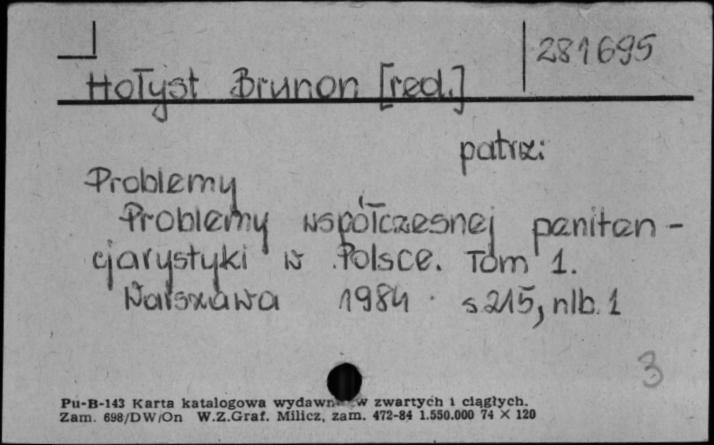 281695
Hołyst Brunon [red.]
patrz:
Problemy
Problemy współczesnej peniten-
cjarystyki w Polsce. Tom 1.
Warszawa 1984 s 215, nlb. 1
3
Pu-B-143 Karta katalogowa wydawn w zwartych i ciągłych.
Zam. 698/DW/On W.Z.Graf. Milicz, zam. 472-84 1.550.000 74 × 120